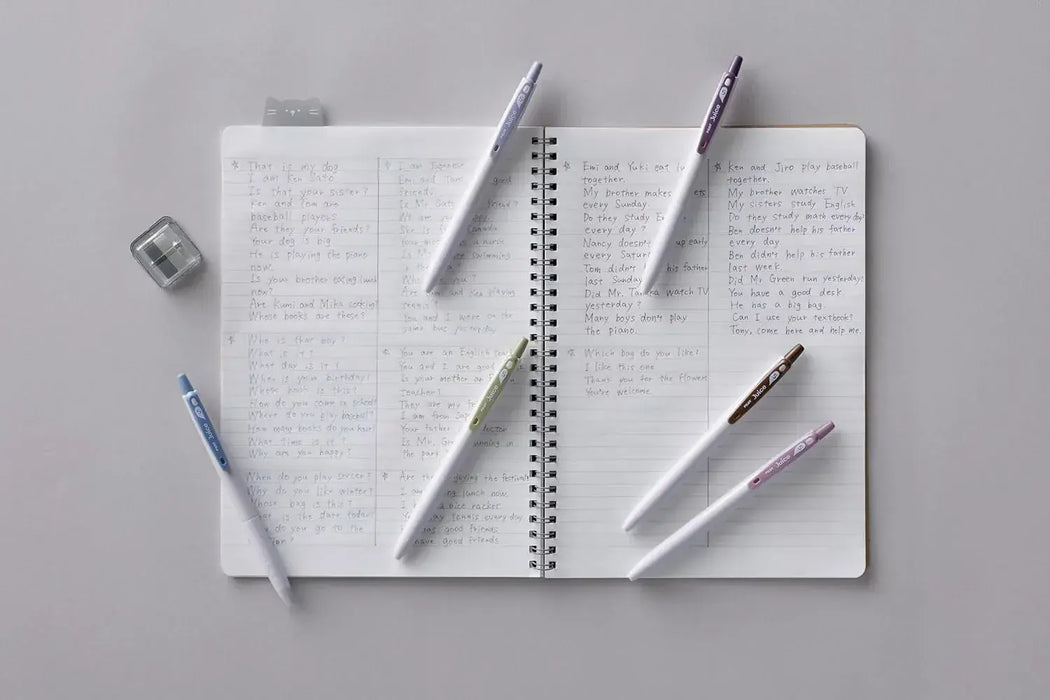 That is my dog
I am Ken Sato
Is that your sister?
Ken and Tom are
baseball players
Are they your friends?
Your dog is big
He is playing the piano
now.
Is your brother eating lunch
now?
Are Kumi and Mika cooking?
Whose books are these?
Who is that boy?
What is it?
What day is it?
When is your birthday?
Whose book is this?
How do you come to school
Where do you play baseball?
How many books do you have?
What time is it?
Why are you happy?
When do you play soccer?
Why do you like winter?
Whose bag is this?
is the date today?
do you go to the
I am Japanese
Emi and good
friends.
Is Mr. friend?
We are
She is
is a nurse
Is swimming
in
Are playing
You and I were in the
same bus yesterday
You are an English
You and I are good
Is your mother
teacher?
They are my
I am from
Your father doctor
Is Mr. running in
the park
Are enjoying the festival?
I am lunch now.
a nice racket
play tennis everyday
good friends
have good friends
Emi and Yuki eat lu
together.
My brother makes
every Sunday.
Do they study E
every day?
Nancy doesn't up early
every Satur
Tom didn't his father
last Sunday
Did Mr. Tanaka watch TV
yesterday?
Many boys don't play
the piano.
Which bag do you like?
I like this one
Thank you for the flowers
You're welcome.
Ken and Jiro play baseball
together.
My brother watches TV
My sisters study English
Do they study math everyday
Ben doesn't help his father
every day.
Ben didn't help his father
last week.
Did Mr Green run yesterday?
You have a good desk
He has a big bag.
Can I use your textbook?
Tony, come here and help me.
PILOT Juice
PILOT Juice
PILOT Juice
PILOT Juice
PILOT Juice
PILOT Juice